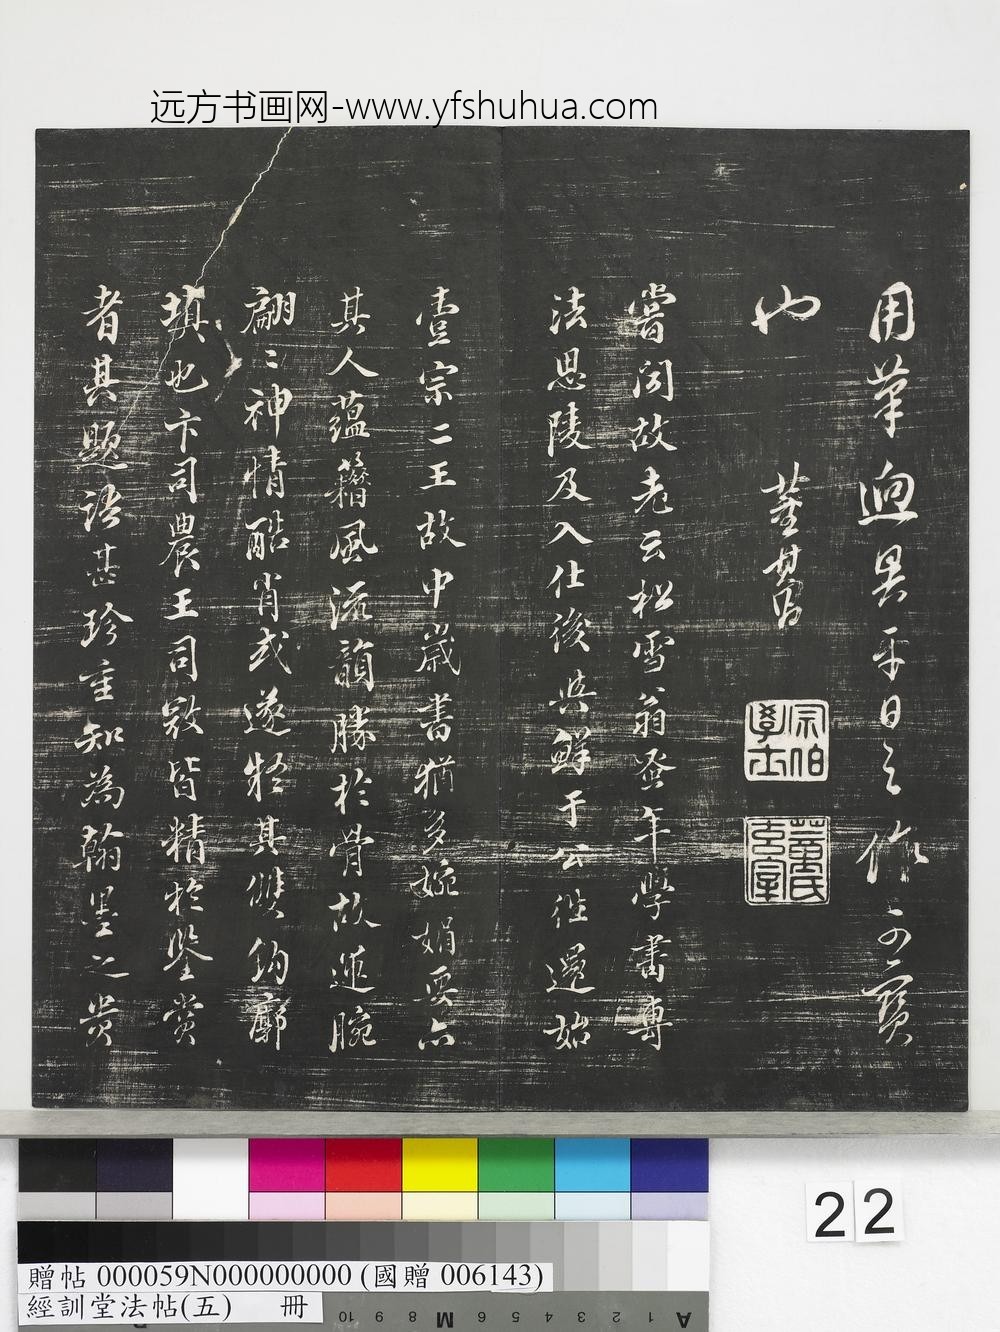 远方书画网-www.yfshuhua.com
用筆迥異平日之作可寶
也
董其昌
宗伯學士
董氏玄宰
嘗聞故老云松雪翁蚤年學書專
法思陵及入仕後與鮮于公往還始
壹宗二王故中歲書猶多婉娟要亦
其人蘊籍風流韻勝於骨故運腕
翩〻神情酷肖或遂疑其雙鈎廓
填也卞司農王司寇皆精於鑒賞
者其題語甚珍重知為翰墨之貴
22
贈帖 000059N000000000 (國贈 006143)
經訓堂法帖(五) 冊
10 9 8 7 6 5 4 3 2 1
M
A